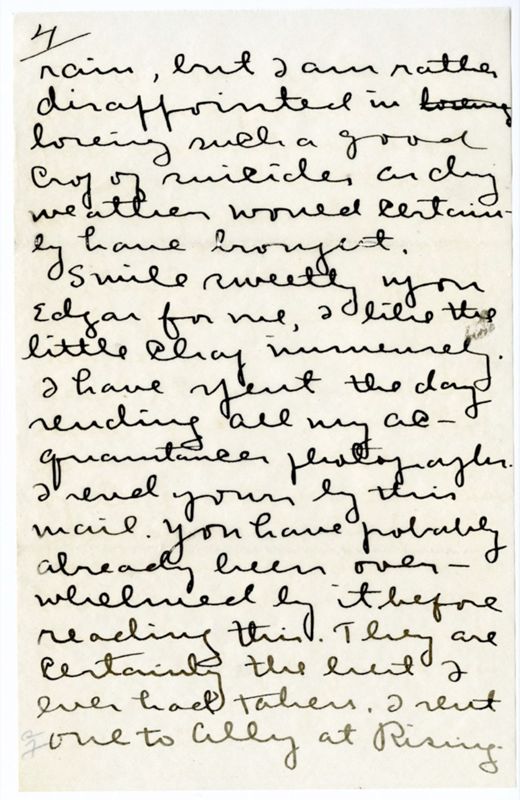 4/
rain, but I am rather
disappointed in losing
loseing such a good
crop of suicides as dry
weather would certain-
ly have brought.
Smile sweetly upon
Edgar for me, I like the
little chap immensely.
I have spent the day
sending all my ac-
quaintances photographs.
I send yours by this
mail. You have probably
already been over-
whelmed by it before
reading this. They are
certainly the best I
ever had taken. I sent
one to Ally at Rising-